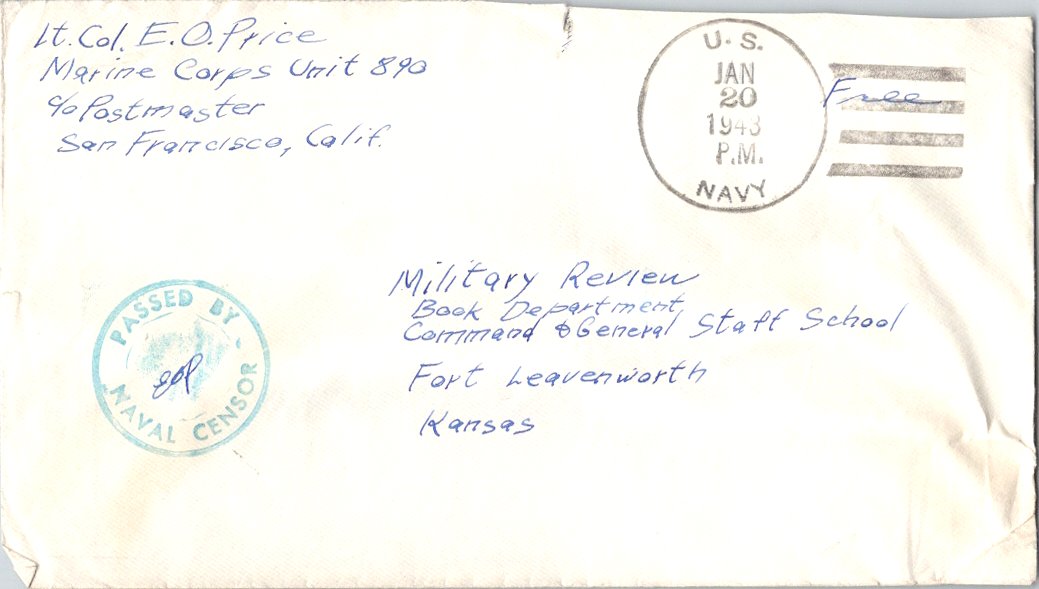 Lt. Col. E. O. Price
Marine Corps Unit 890
c/o Postmaster
San Francisco, Calif.
U. S.
JAN
20
1943
P.M.
NAVY
Free
Military Review
Book Department
Command & General Staff School
Fort Leavenworth
Kansas
PASSED BY
eop
NAVAL CENSOR